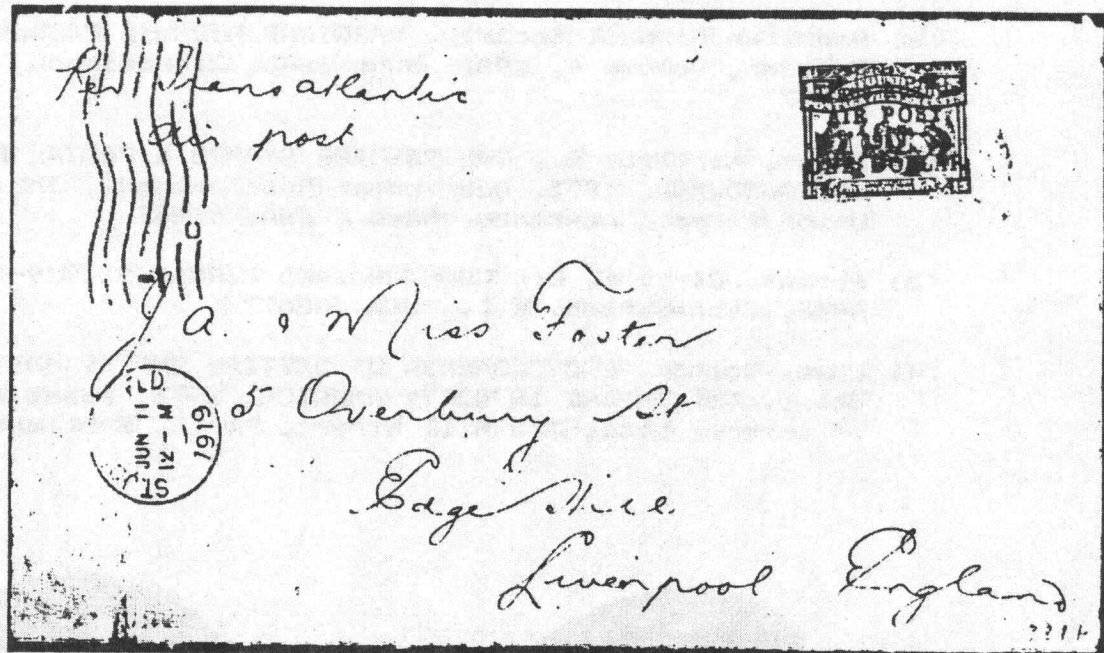 Per Trans atlantic
air post
AIR POST
A & Miss Foster
5 Overbury St
Edge Hill
Liverpool England
JUN 11
12 - M
1919